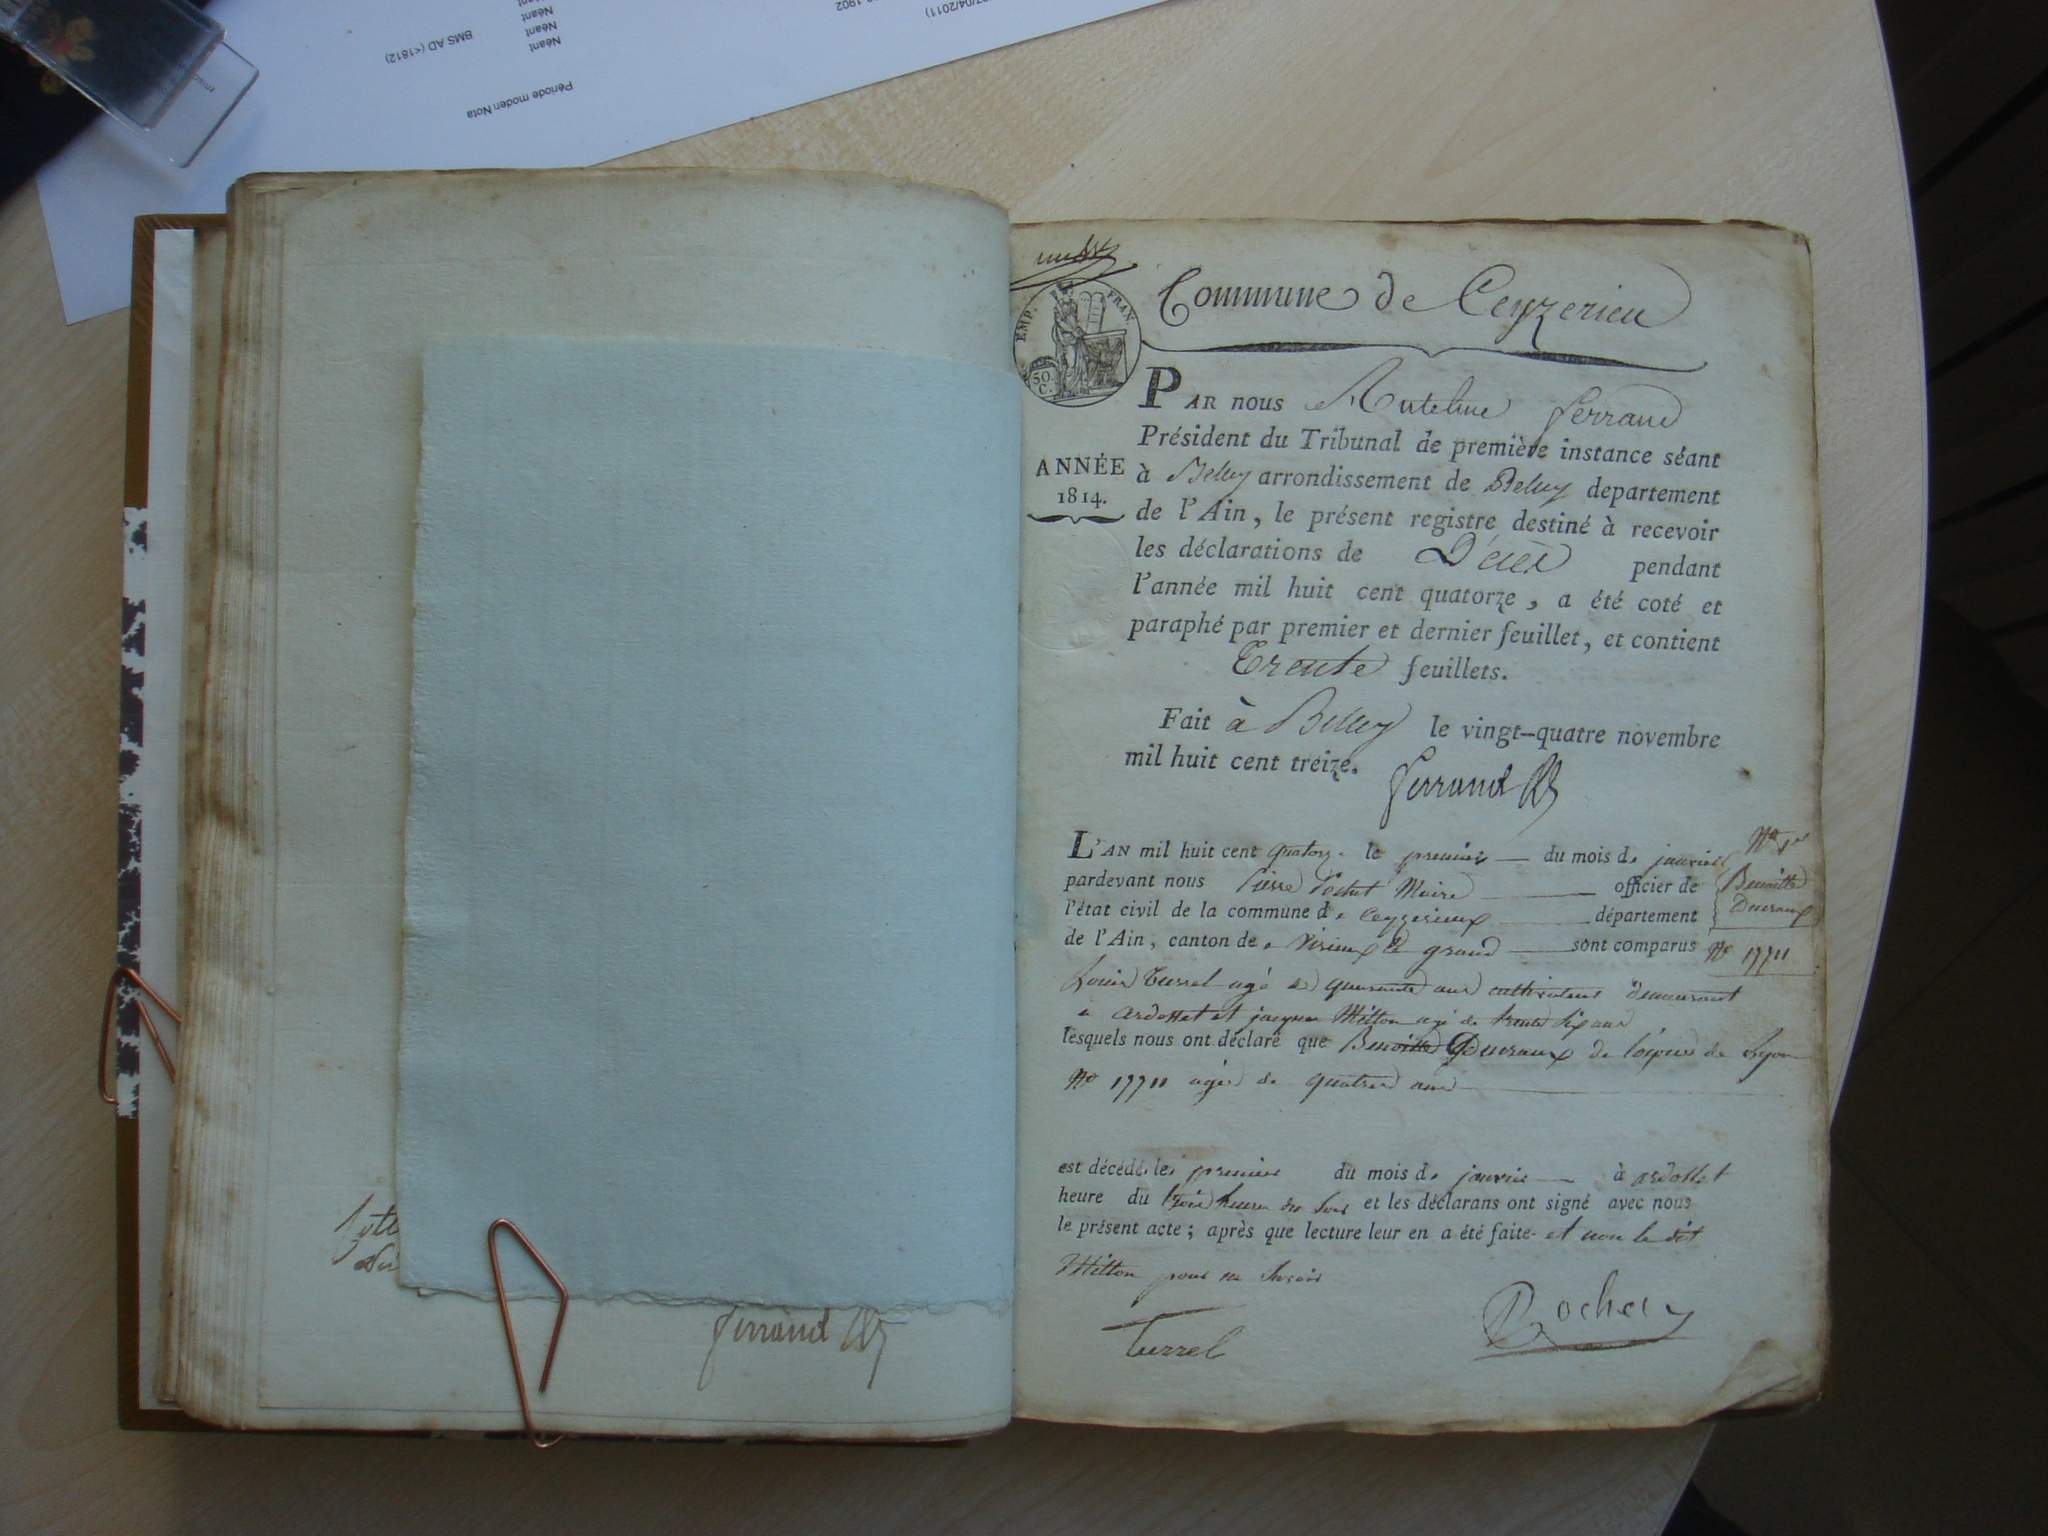 Néant
Néant
Néant
BMS AD (<1812)
Période moden Nota
1902
07/04/2011)
Commune de Ceyzerieu
EMP. FRAN.
50. C.
PAR nous Antelme ferrand
Président du Tribunal de première instance séant
ANNÉE
1814.
à Belley arrondissement de Belley departement
de l'Ain, le présent registre destiné à recevoir
les déclarations de Décès pendant
l'année mil huit cent quatorze, a été coté et
paraphé par premier et dernier feuillet, et contient
Trente feuillets.
Fait à Belley le vingt-quatre novembre
mil huit cent treize.
ferrand
L'AN mil huit cent quatorz. le premier du mois de janvier
pardevant nous Pierre Maire officier de
l'état civil de la commune de Ceyzerieux département
de l'Ain, canton de Virieux le grand sont comparus
Benoitte
Ducraux
N° 17711
Louis Turrel agé de quarante ans cultivateur demeurant
a ardosset et jacques Mitton agé de trente six ans
lesquels nous ont déclaré que Benoitte Ducraux de lospice de Lyon
N° 17711 agée de quatre ans
est décédé le premier du mois de janvier à ardosset
heure du trois heures du soir et les déclarans ont signé avec nous
le présent acte ; après que lecture leur en a été faite et non le dit
Mitton pour ne savoir
Turrel
ferrand